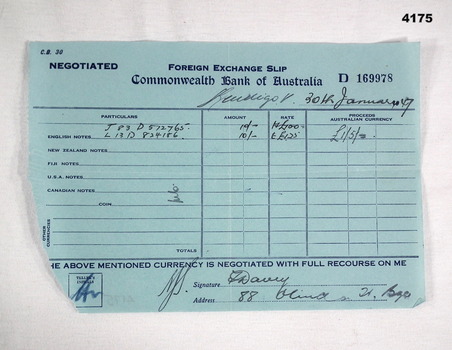 4175
C.B. 30
NEGOTIATED
FOREIGN EXCHANGE SLIP
Commonwealth Bank of Australia D 169978
Bendigo V. 30th January 47
PARTICULARS AMOUNT RATE PROCEEDS AUSTRALIAN CURRENCY
J 83 D 572765 10/-
ENGLISH NOTES L 13 D 834186 10/- £1/5/-
NEW ZEALAND NOTES
FIJI NOTES
U.S.A. NOTES
CANADIAN NOTES
COIN
OTHER CURRENCIES
TOTALS
HE ABOVE MENTIONED CURRENCY IS NEGOTIATED WITH FULL RECOURSE ON ME
TELLER'S
Signature Davey
Address 88 St. Bgo